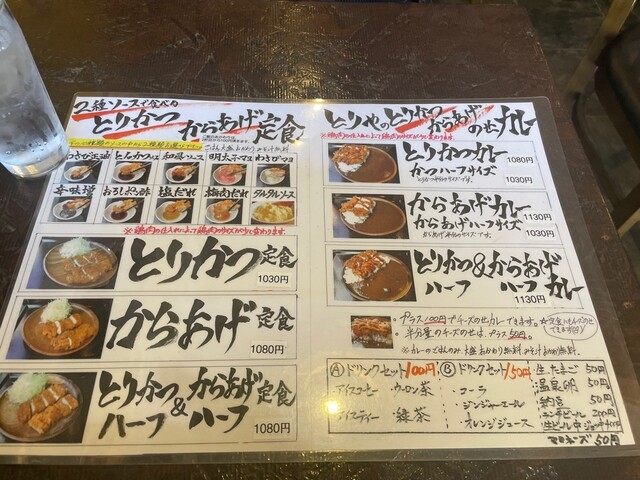 2種ソースで食べる
とりかつ
からあげ定食
わさび正油
とんかつソース
和風ソース
明太子マヨ
わさびマヨ
辛味噌
おろしポン酢
塩だれ
梅肉だれ
タルタルソース
※鶏肉の仕入れによって鶏肉のサイズが少々変わります。
とりかつ定食
1030円
からあげ定食
1080円
とりかつ&からあげ
ハーフ ハーフ
1080円
とりやのとりかつ からあげのせカレー
※鶏肉の仕入れによって鶏肉のサイズが少々変わります。
とりかつカレー 1080円
かつハーフサイズ 1030円
からあげカレー 1130円
からあげハーフサイズ 1030円
とりかつ&からあげ
ハーフ ハーフ カレー
1130円
・プラス100円でチーズのせカレーできます。
・半分量のチーズのせは、プラス50円。
※カレーのごはんのみ 大盛 おかわり無料
Ⓐドリンクセット100円
アイスコーヒー ・ウーロン茶
アイスティー ・緑茶
Ⓑドリンクセット150円
・コーラ
・ジンジャーエール
・オレンジジュース
生たまご 50円
温泉卵 50円
納豆 50円
200円
生ビール中
マヨネーズ 50円